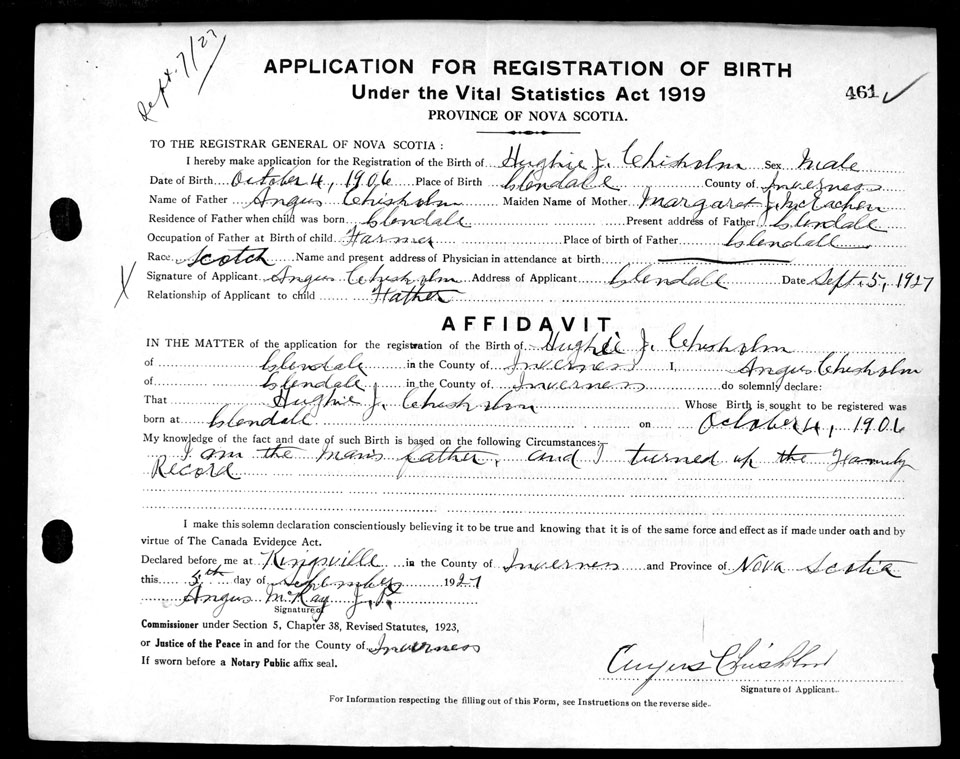 Sept. 7/27
APPLICATION FOR REGISTRATION OF BIRTH
Under the Vital Statistics Act 1919
461
PROVINCE OF NOVA SCOTIA.
TO THE REGISTRAR GENERAL OF NOVA SCOTIA :
I hereby make application for the Registration of the Birth of Hughie J. Chisholm Sex Male
Date of Birth October 4, 1906 Place of Birth Glendale County of Inverness
Name of Father Angus Chisholm Maiden Name of Mother Margaret J. McEachen
Residence of Father when child was born Glendale Present address of Father Glendale
Occupation of Father at Birth of child Farmer Place of birth of Father Glendale
Race Scotch Name and present address of Physician in attendance at birth
X Signature of Applicant Angus Chisholm Address of Applicant Glendale Date Sept. 5, 1927
Relationship of Applicant to child Father
AFFIDAVIT.
IN THE MATTER of the application for the registration of the Birth of Hughie J. Chisholm
of Glendale in the County of Inverness I, Angus Chisholm
of Glendale in the County of Inverness do solemnly declare:
That Hughie J. Chisholm Whose Birth is sought to be registered was
born at Glendale on October 4, 1906
My knowledge of the fact and date of such Birth is based on the following Circumstances:
I am the man's father, and I turned up the Family
Record
I make this solemn declaration conscientiously believing it to be true and knowing that it is of the same force and effect as if made under oath and by
virtue of The Canada Evidence Act.
Declared before me at Kingsville in the County of Inverness and Province of Nova Scotia
this 5th day of September 1927
Angus McKay J.P.
Signature of
Commissioner under Section 5, Chapter 38, Revised Statutes, 1923,
or Justice of the Peace in and for the County of Inverness
If sworn before a Notary Public affix seal.
Angus Chisholm
Signature of Applicant.
For Information respecting the filling out of this Form, see Instructions on the reverse side.